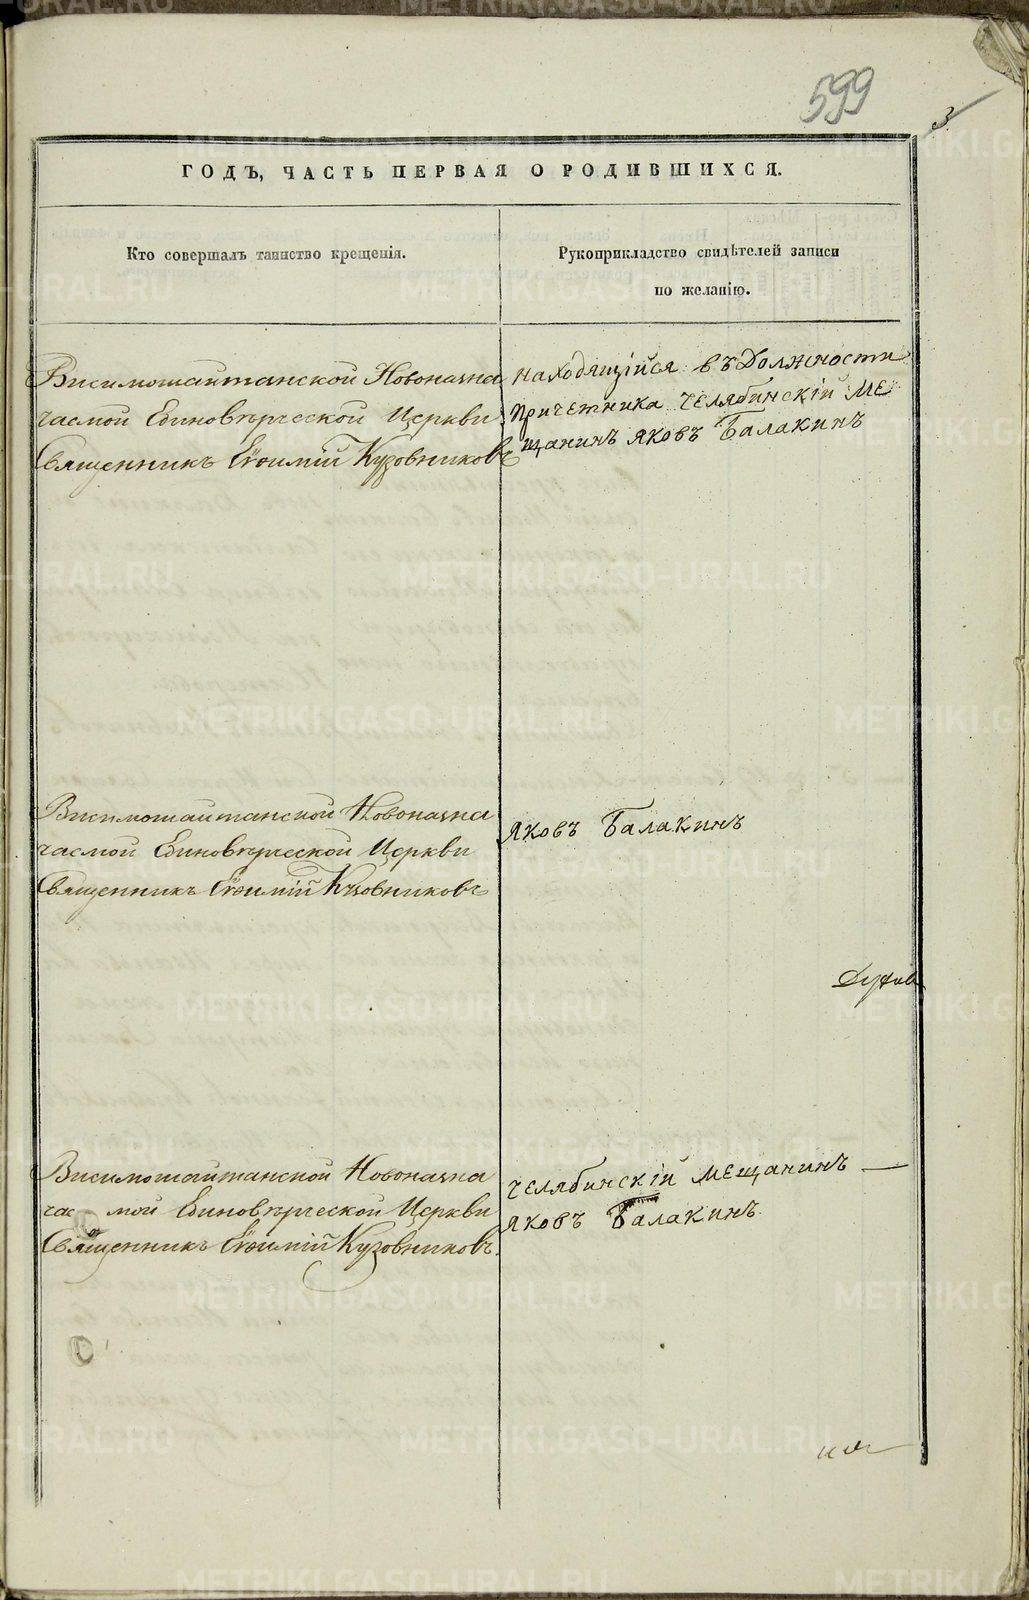 599
3
ГОДЪ, ЧАСТЬ ПЕРВАЯ О РОДИВШИХСЯ.
Кто совершалъ таинство крещенія.
Рукоприкладство свидѣтелей записи
по желанію.
Висимошайтанской Новоназна
чаемой Единовѣрческой Церкви
Священникъ Евѳимій Кузовниковъ
находящійся въ Должности
Причетника Челябинскій Ме
щанинъ Яковъ Балакинъ
Висимошайтанской Новоназна
чаемой Единовѣрческой Церкви
Священникъ Евѳимій Кузовниковъ
Яковъ Балакинъ
Висимошайтанской Новоназна
чаемой Единовѣрческой Церкви
Священникъ Евѳимій Кузовниковъ.
Челябинскій мещанинъ
Яковъ Балакинъ
METRIKI.GASO-URAL.RU